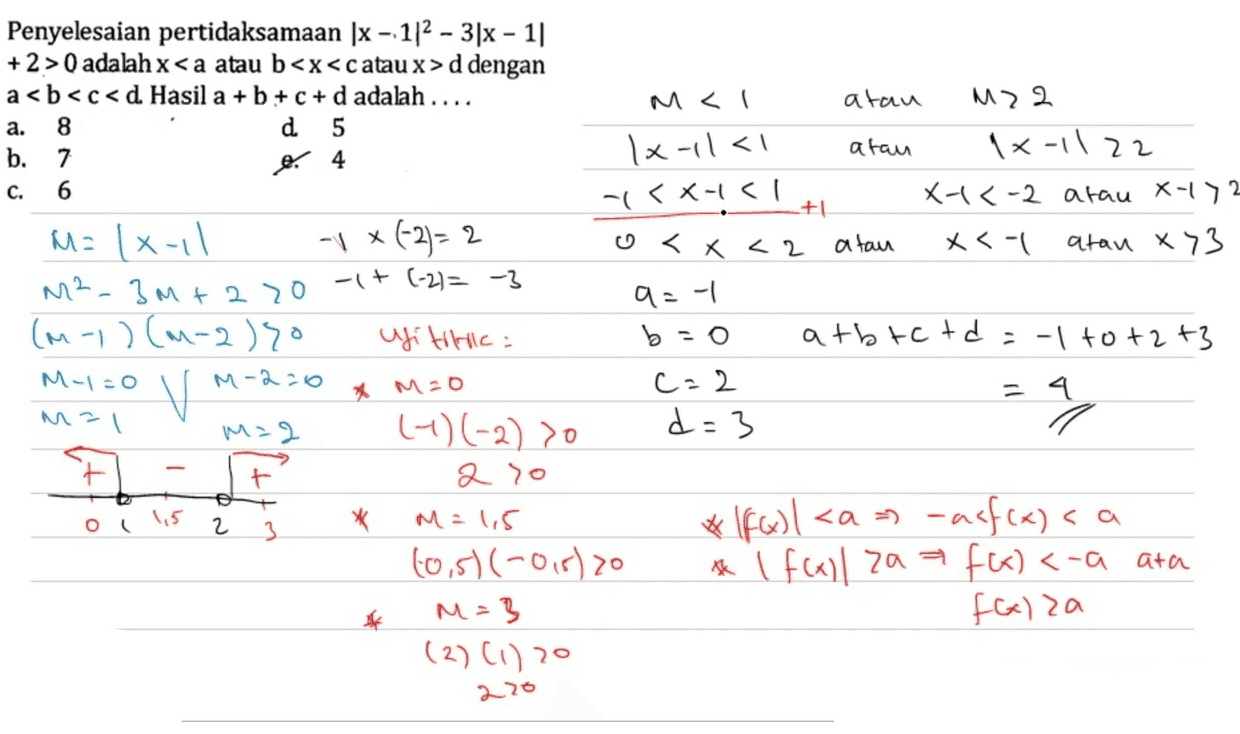 Penyelesaian pertidaksamaan |x – 1|² – 3|x – 1|
+ 2 > 0 adalah x < a atau b < x < c atau x > d dengan
a < b < c < d. Hasil a + b + c + d adalah . . . .
a. 8
b. 7
c. 6
d. 5
e. 4
M = |x-1|
M² - 3M + 2 > 0
(M-1)(M-2) > 0
M-1=0 V M-2=0
M=1 M=2
+ - +
0 1 1,5 2 3
-1 x (-2) = 2
-1 + (-2) = -3
Uji titik :
* M=0
(-1)(-2) > 0
2 > 0
* M = 1,5
(0,5)(-0,5) > 0
* M = 3
(2)(1) > 0
2 > 0
M < 1 atau M > 2
|x-1| < 1 atau |x-1| > 2
-1 < x-1 < 1 +1 x-1 < -2 atau x-1 > 2
0 < x < 2 atau x < -1 atau x > 3
a = -1
b = 0
c = 2
d = 3
a+b+c+d = -1+0+2+3
= 4
* |f(x)| < a ⇒ -a < f(x) < a
* |f(x)| > a ⇒ f(x) < -a ata
f(x) > a